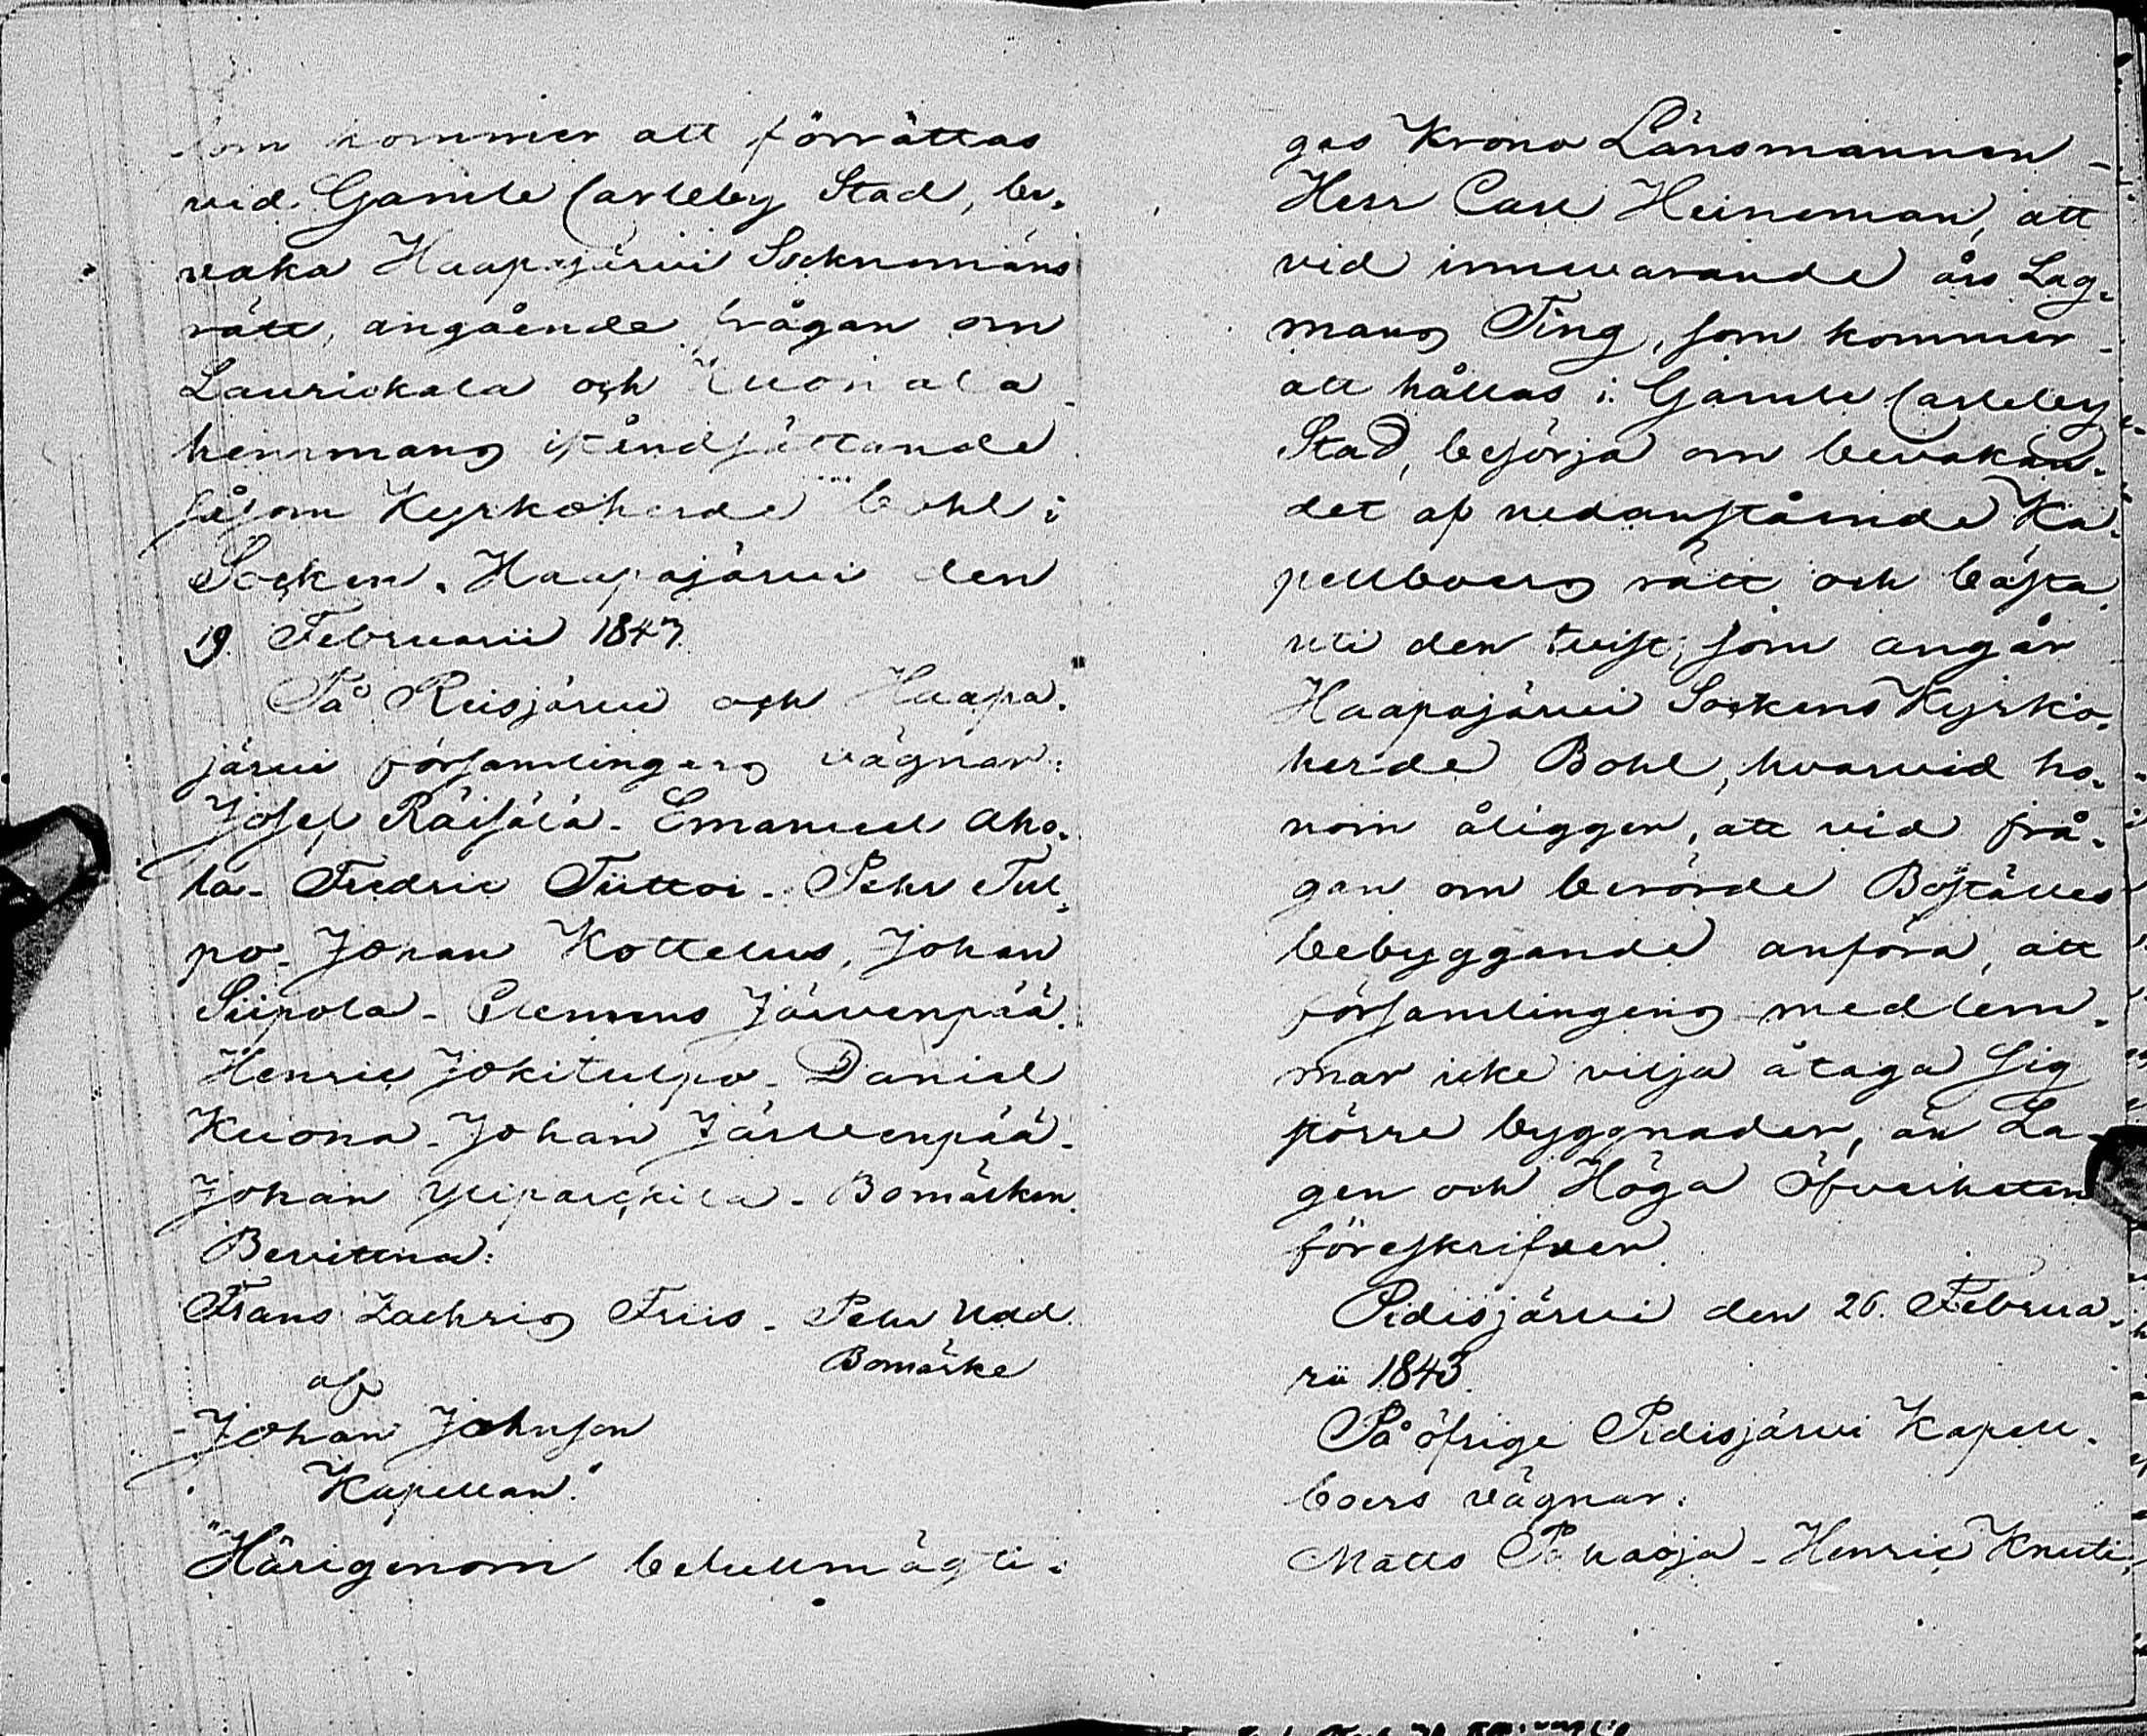 som kommer att förrättas
vid Gamle Carleby Stad, be-
vaka Haapajärwi Socknemäns
rätt, angående frågan om
Laurickala och Kuonala
hemmans iståndsättande
såsom Kyrkoherde Bohl i
Socken. Haapajärwi den
19 Februarii 1843
På Reisjärwi och Haapa-
järwi församlingars vägnar:
Josef Räisälä - Emanuel Aho-
la - Fredric Tiittoi - Pehr Tul-
po - Johan Kottelus, Johan
Siipola - Clemens Järwenpää
Henric Jokitulpo - Daniel
Kuona - Johan Järwenpää -
Johan - Bomärken.
Bevittna:
Frans Zachris Friis - Pehr Udd
Bomärke
af
Johan Johnson
Kapellan."
"Härigenom befullmägti-
gas Krono Länsmannen
Herr Carl Heineman, att
vid innevarande års Lag-
mans Ting, som kommer
att hållas i Gamle Carleby
Stad, besörja om bevakan-
det af nedanstående Ka-
pellboers rätt och bästa
uti den tvist, som angår
Haapajärwi Sockens Kyrko-
herde Bohl, hvarvid ho-
nom åligger, att vid frå-
gan om berörde Boställes
bebyggande anföra, att
församlingens medlem-
mar icke vilja åtaga sig
större byggnader, än La-
gen och Höga Öfverheten
föreskrifver.
Pidisjärwi den 26. Februa-
rii 1843.
På öfrige Pidisjärwi Kapell-
boers vägnar:
Matts Pahaoja - Henric Knuti-